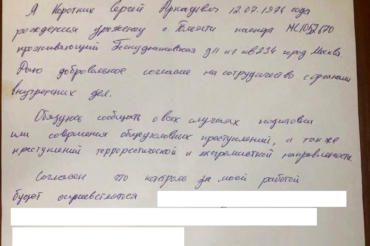 Я Коротких Сергей Аркадьевич 12.07.1976 года
рождения уроженец о паспорт МС1052670
проживающий Бескудниковская д11 кв234 город Москва.
Даю добровольное согласие на сотрудничество с органами
внутренних дел.
Обязуюсь сообщать о всех случаях подготовки
или совершения общеуголовных преступлений, а также
преступлений террористической и экстремистской направленности
Согласен что контроль за моей работой
будет осуществляться